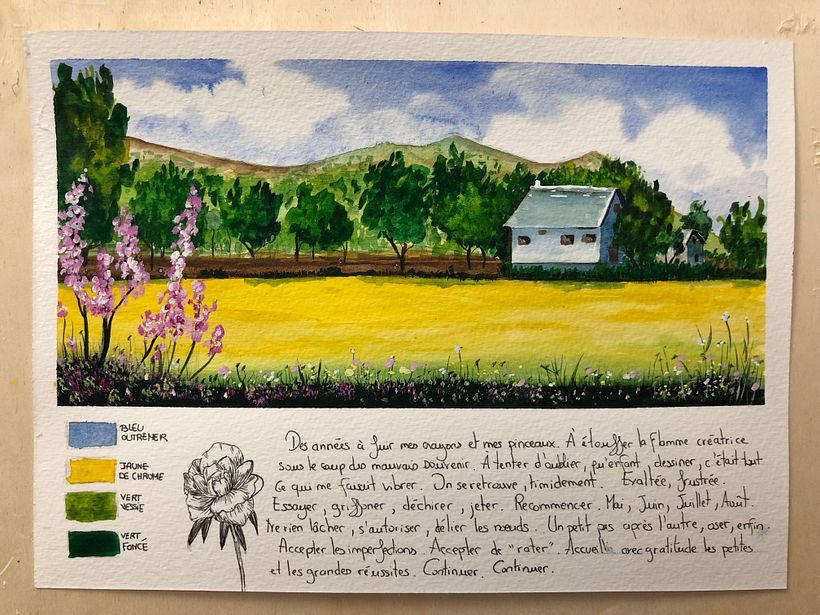 BLEU
OUTREMER
JAUNE
DE CHROME
VERT
VESSIE
VERT
FONCÉ
Des années à fuir mes crayons et mes pinceaux. À étouffer la flamme créatrice
sous le coup du mauvais souvenir. À tenter d'oublier, qu'enfant, dessiner, c'était tout
ce qui me faisait vibrer. On se retrouve, timidement. Exaltée, frustrée.
Essayer, griffoner, déchirer, jeter. Recommencer. Mai, Juin, Juillet, Août.
Ne rien lâcher, s'autoriser, délier les nœuds. Un petit pas après l'autre, oser, enfin.
Accepter les imperfections. Accepter de "rater". Accueillir avec gratitude les petites
et les grandes réussites. Continuer. Continuer.